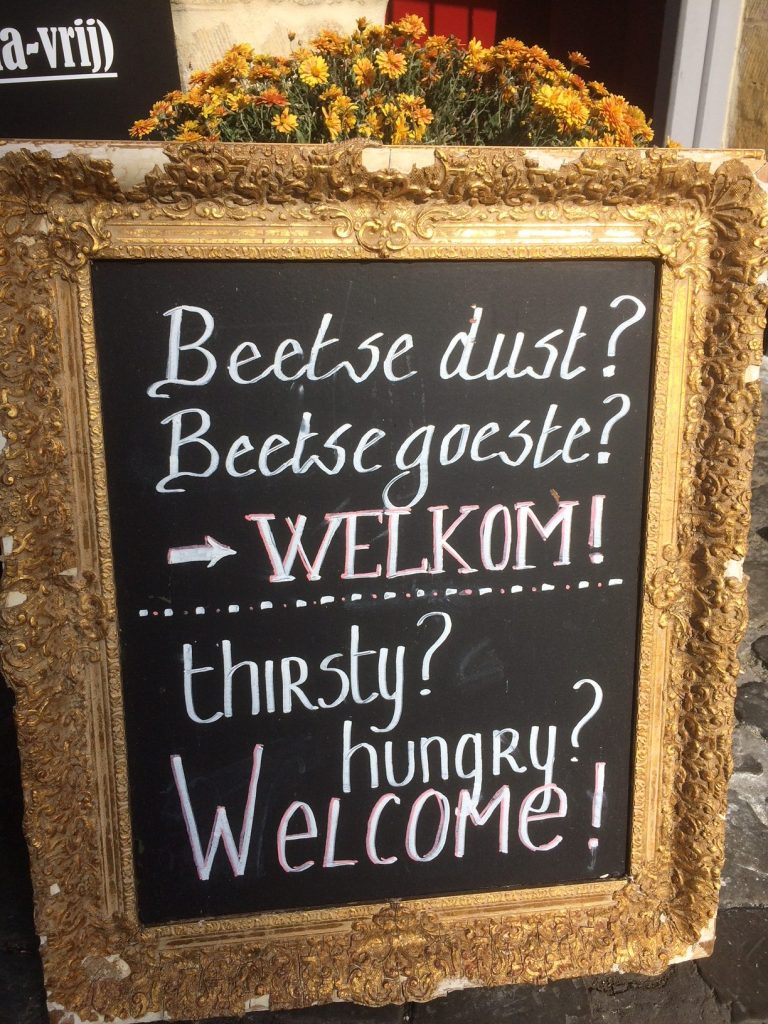 a-vrij)
Beetse dust?
Beetse goeste?
→ WELKOM!
thirsty?
hungry?
Welcome!